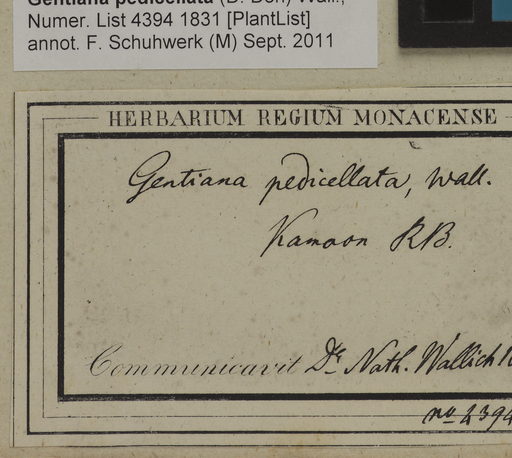 Gentiana pedicellata (D. Don) Wall.,
Numer. List 4394 1831 [PlantList]
annot. F. Schuhwerk (M) Sept. 2011
HERBARIUM REGIUM MONACENSE
Gentiana pedicellata, Wall.
Kamaon RB.
Communicavit Dr. Nath. Wallich
no 4394